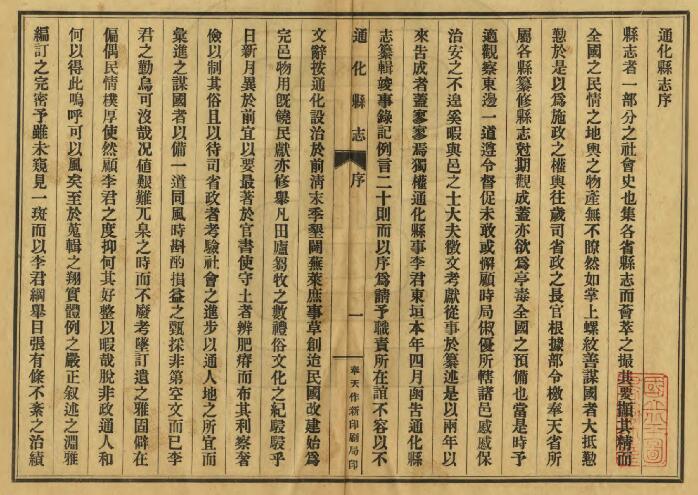 通化縣志序
縣志者一部分之社會史也集各省縣志而薈萃之撮其要擷其精而
全國之民情之地輿之物產無不瞭然如掌上螺紋善謀國者大抵懃
懃於是以爲施政之權輿往歲司省政之長官根據部令檄奉天省所
屬各縣纂修縣志尅期觀成蓋亦欲爲亭毒全國之預備也當是時予
適觀察東邊一道遵令督促未敢或懈顧時局俶優所轄諸邑戚戚保
治安之不遑奚暇與邑之士大夫徵文考獻從事於纂述是以兩年以
來告成者蓋寥寥焉獨權通化縣事李君東垣本年四月函告通化縣
志纂輯竣事錄記例言二十則而以序爲請予職責所在誼不容以不
通化縣志
序
一
奉天作新印刷局印
文辭按通化設治於前淸末季墾闢蕪萊庶事草創造民國改建始爲
完邑物用旣饒民獻亦修舉凡田廬芻牧之數禮俗文化之紀駸駸乎
日新月異於前宜以要最著於官書使守土者辨肥瘠而布其利察奢
儉以制其俗且以待司省政者考驗社會之進步以通人地之所宜而
彙進之謀國者以備一道同風時斟酌損益之甄採非第空文而已李
君之勤烏可沒哉况値艱難兀臬之時而不廢考墜訂遺之雅固僻在
偏偶民情樸厚使然顧李君之度抑何其好整以暇哉脫非政通人和
何以得此嗚呼可以風矣至於蒐輯之翔實體例之嚴正叙述之淵雅
編訂之完密予雖未窺見一斑而以李君綱舉目張有條不紊之治績